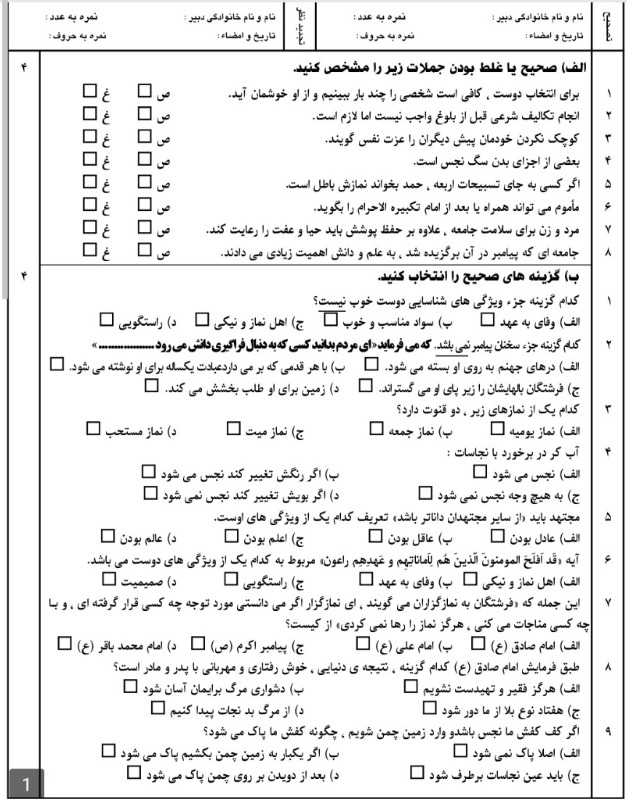 تصحیح
نام و نام خانوادگی دبیر : نمره به عدد :
تاریخ و امضاء : نمره به حروف :
تجدید نظر
نام و نام خانوادگی دبیر : نمره به عدد :
تاریخ و امضاء : نمره به حروف :
الف) صحیح یا غلط بودن جملات زیر را مشخص کنید. ۴
۱ برای انتخاب دوست ، کافی است شخصی را چند بار ببینیم و از او خوشمان آید. ص □ غ □
۲ انجام تکالیف شرعی قبل از بلوغ واجب نیست اما لازم است. ص □ غ □
۳ کوچک نکردن خودمان پیش دیگران را عزت نفس گویند. ص □ غ □
۴ بعضی از اجزای بدن سگ نجس است. ص □ غ □
۵ اگر کسی به جای تسبیحات اربعه ، حمد بخواند نمازش باطل است. ص □ غ □
۶ مأموم می تواند همراه یا بعد از امام تکبیره الاحرام را بگوید. ص □ غ □
۷ مرد و زن برای سلامت جامعه ، علاوه بر حفظ پوشش باید حیا و عفت را رعایت کند. ص □ غ □
۸ جامعه ای که پیامبر در آن برگزیده شد ، به علم و دانش اهمیت زیادی می دادند. ص □ غ □
ب) گزینه های صحیح را انتخاب کنید. ۴
۱ کدام گزینه جزء ویژگی های شناسایی دوست خوب نیست؟
الف) وفای به عهد □ ب) سواد مناسب و خوب □ ج) اهل نماز و نیکی □ د) راستگویی □
۲ کدام گزینه جزء سخنان پیامبر نمی باشد. که می فرماید«ای مردم بدانید کسی که به دنبال فراگیری دانش می رود .................. »
الف) درهای جهنم به روی او بسته می شود. □ ب) با هر قدمی که بر می داردعبادت یکساله برای او نوشته می شود. □
ج) فرشتگان بالهایشان را زیر پای او می گسترانند. □ د) زمین برای او طلب بخشش می کند. □
۳ کدام یک از نمازهای زیر ، دو قنوت دارد؟
الف) نماز یومیه □ ب) نماز جمعه □ ج) نماز میت □ د) نماز مستحب □
۴ آب کر در برخورد با نجاسات :
الف) نجس می شود □ ب) اگر رنگش تغییر کند نجس می شود □
ج) به هیچ وجه نجس نمی شود □ د) اگر بویش تغییر کند نجس نمی شود □
۵ مجتهد باید «از سایر مجتهدان داناتر باشد» تعریف کدام یک از ویژگی های اوست.
الف) عادل بودن □ ب) عاقل بودن □ ج) اعلم بودن □ د) عالم بودن □
۶ آیه «قَد اَفلَحَ المومنونَ الَّذینَ هُم لِأَماناتِهِم و عَهدِهِم راعون» مربوط به کدام یک از ویژگی های دوست می باشد.
الف) اهل نماز و نیکی □ ب) وفای به عهد □ ج) راستگویی □ د) صمیمیت □
۷ این جمله که «فرشتگان به نمازگزاران می گویند ، ای نمازگزار اگر می دانستی مورد توجه چه کسی قرار گرفته ای ، و بـا
چه کسی مناجات می کنی ، هرگز نماز را رها نمی کردی» از کیست؟
الف) امام صادق (ع) □ ب) امام علی (ع) □ ج) پیامبر اکرم (ص) □ د) امام محمد باقر (ع) □
۸ طبق فرمایش امام صادق (ع) کدام گزینه ، نتیجه ی دنیایی ، خوش رفتاری و مهربانی با پدر و مادر است؟
الف) هرگز فقیر و تهیدست نشویم □ ب) دشواری مرگ برایمان آسان شود □
ج) هفتاد نوع بلا از ما دور شود □ د) از مرگ بد نجات پیدا کنیم □
۹ اگر کف کفش ما نجس باشدو وارد زمین چمن شویم ، چگونه کفش ما پاک می شود؟
الف) اصلا پاک نمی شود □ ب) اگر یکبار به زمین چمن بکشیم پاک می شود □
ج) باید عین نجاسات برطرف شود □ د) بعد از دویدن بر روی چمن پاک می شود □
1